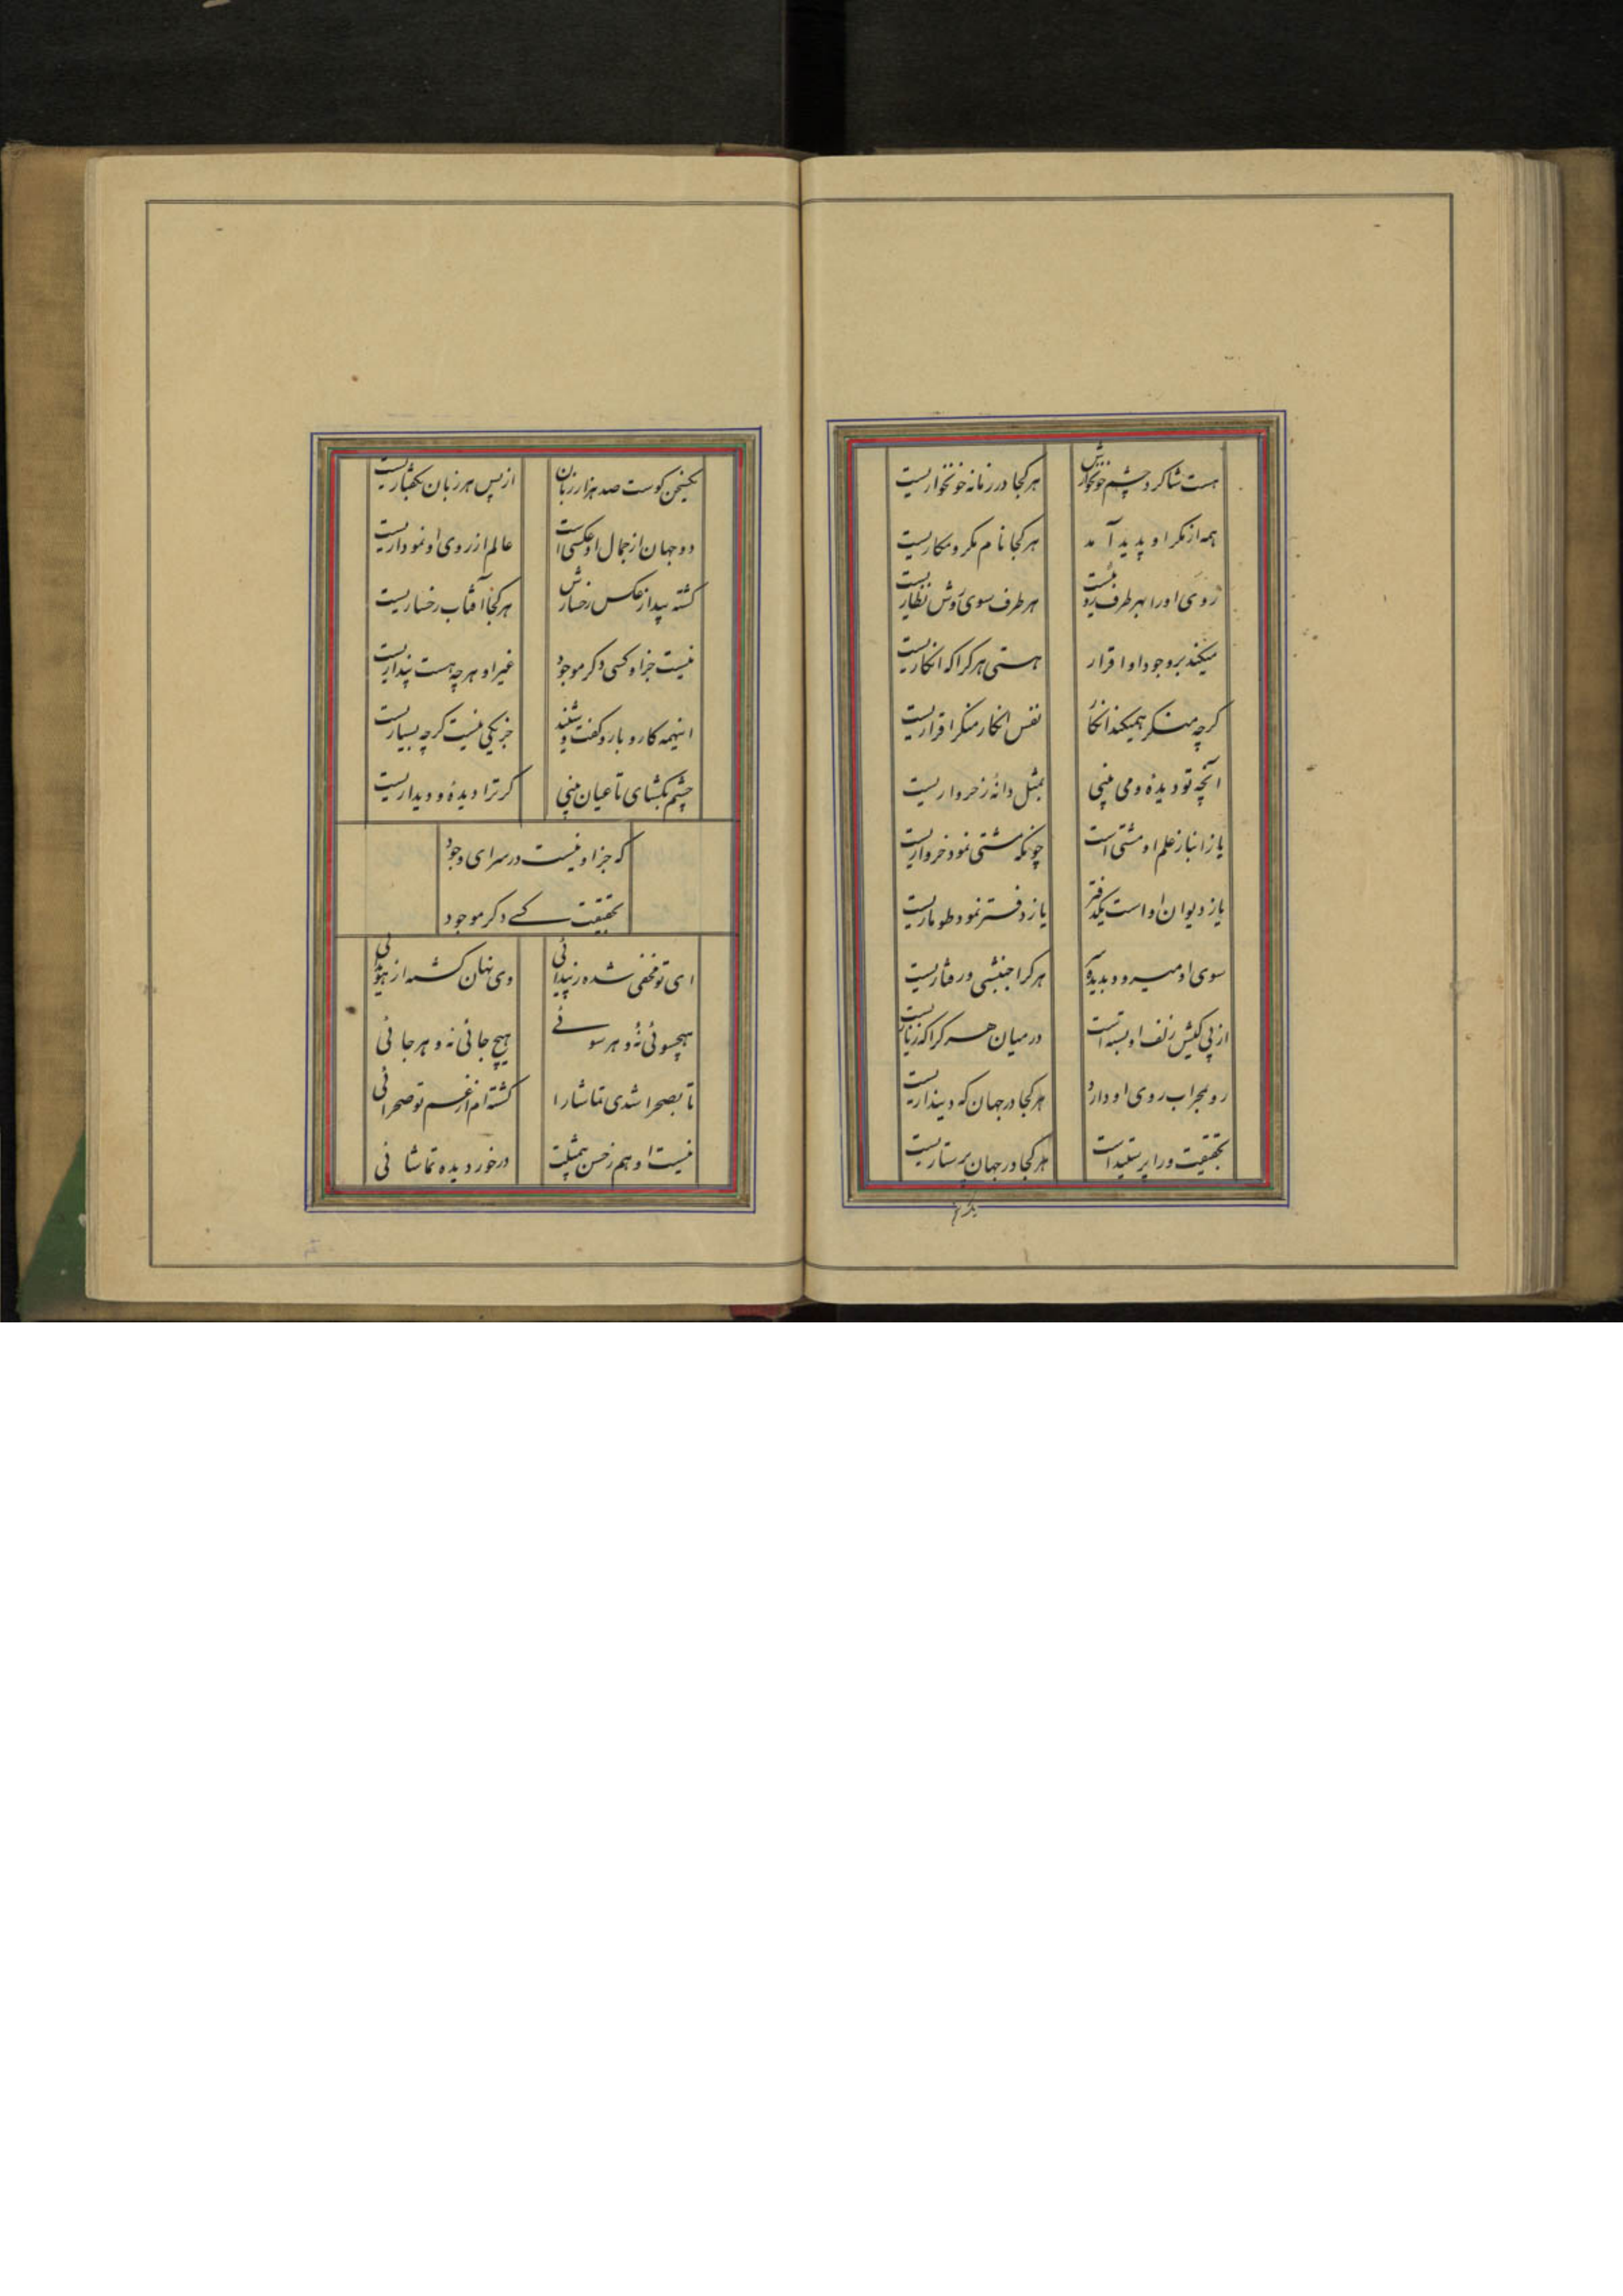 هست شاکرد چشم خونخوارش هر کجا در زمانه خونخواریست
همه از مکر او پدید آمد هر کجا نام مکر و مکاریست
روی او را بهر طرف روئیست هر طرف سوی روش نظاریست
میکند بر وجود او اقرار هستی هر کرا که انکاریست
کرچه منکر همیکند انکار نفس انکار منکر اقراریست
آنچه تو دیدهٔ و می بینی بمثل دانهٔ ز خرواریست
یا ز انبار علم او مشتی است چونکه مشتی نمود خرواریست
یا ز دیوان او است یکدفتر یا ز دفتر نمود طوماریست
سوی او میرود بدیده و سر هر کرا جنبشی و رفتاریست
از پی کیش زلف او بسته است در میان هر کرا که زناریست
رو بمحراب روی او دارد هر کجا در جهان که دینداریست
بحقیقت ورا پرستیداست هر کجا در جهان پرستاریست
یکسخن کوست صد هزار زبان از پس هر زبان بکفتاریست
دو جهان از جمال او عکسی است عالم از روی او نموداریست
کشته پیدا ز عکس رخسارش هر کجا آفتاب رخساریست
نیست جز او کسی دکر موجود غیر او هر چه هست پنداریست
اینهمه کار و بار و کفت و شنید جز یکی نیست کرچه بسیاریست
چشم بکشای تا عیان بینی کر ترا دیدهٔ و دیداریست
که جز او نیست در سرای وجود
بحقیقت کسے دکر موجود
ای تو مخفی شده ز پیدائی وی نهان کشته از هویدائی
هیچسوئی نهٔ و هر سوئے هیچ جائی نه و هر جائی
تا بصحرا شدی تماشا را کشته ام از غم تو صحرائی
نیست او هم ز حسن بمثلیت در خور دیده تماشائی